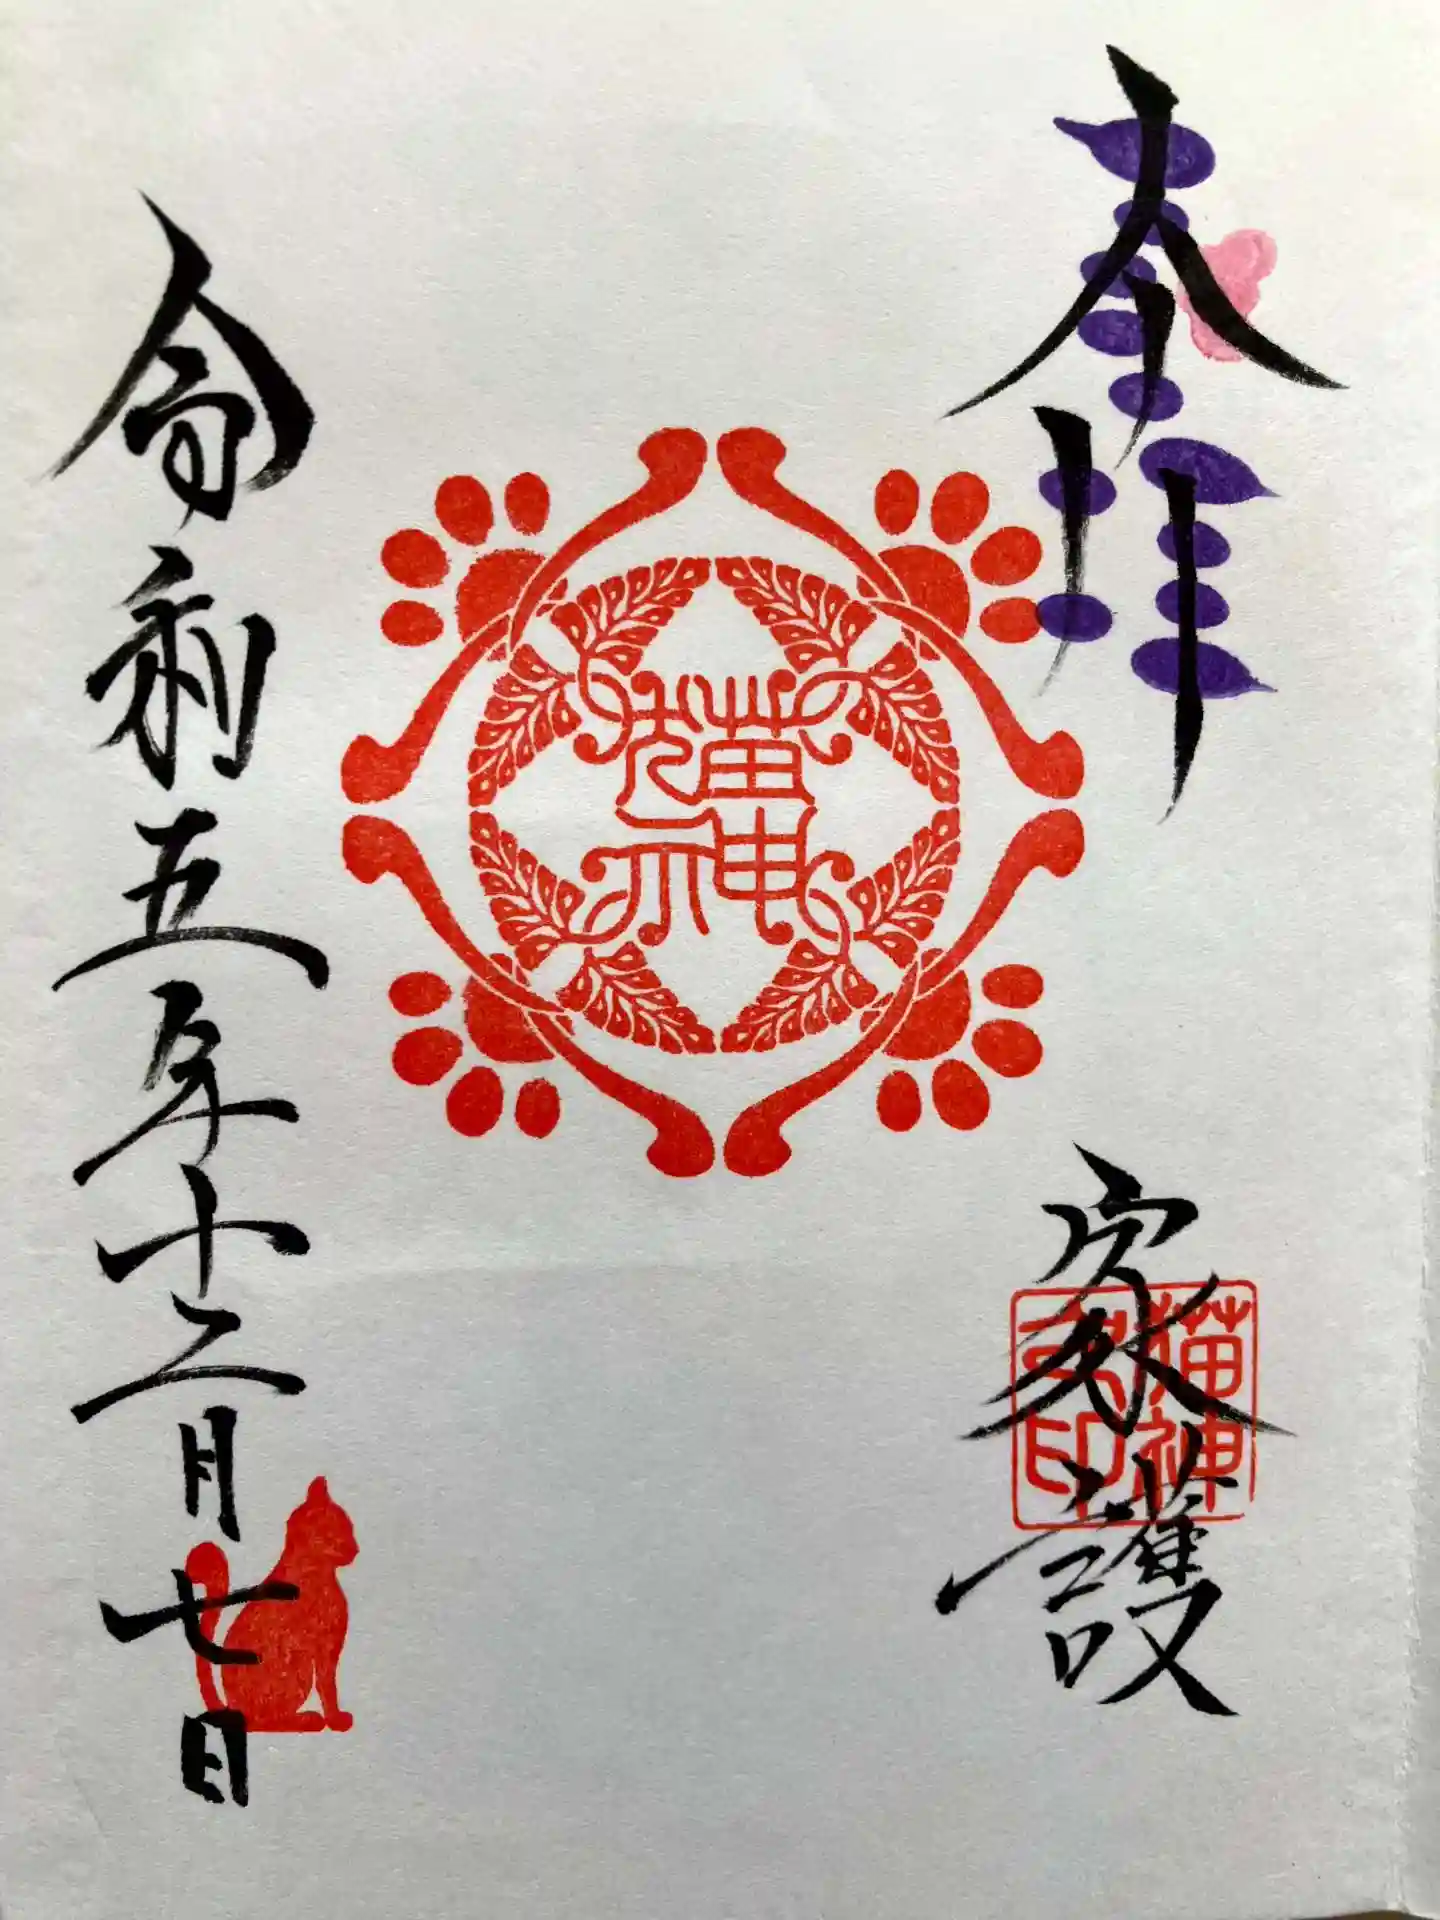 奉拝
家護
猫神
猫神
印
令和五年十二月七日